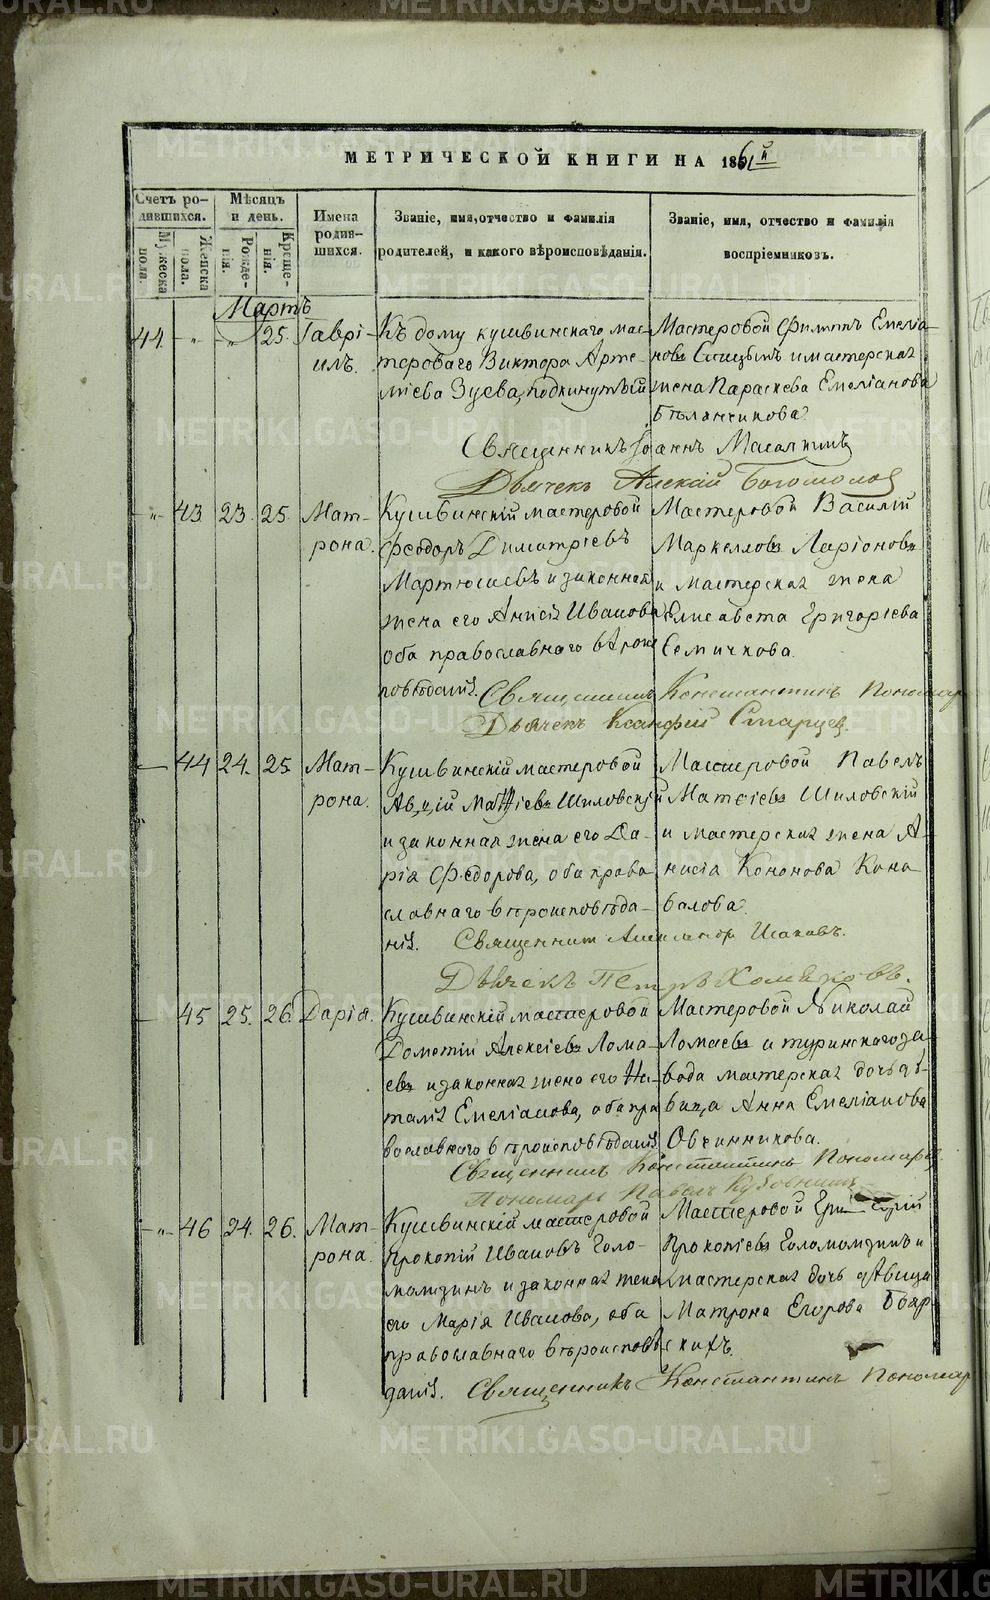 МЕТРИЧЕСКОЙ КНИГИ НА 1861й
Счетъ ро-
дившихся.
Мужеска
пола.
Женска
пола.
Мѣсяцъ
и день.
Рожде-
нія.
Креще-
нія.
Имена
родив-
шихся.
Званіе, имя, отчество и фамилія
родителей, и какого вѣроисповѣданія.
Званіе, имя, отчество и фамилія
воспріемниковъ.
Мартъ
44 - „ - „ 25. Гаврі-
илъ.
Къ дому кушвинскаго мас-
тероваго Виктора Арте-
мiева Зуева, подкинутый
Мастеровой Филиппъ Емеліа-
новъ Спицынъ и мастерская
жена Параскева Емеліанова
Бѣлянчикова
Священникъ Іоаннъ
Дьячекъ Алексій Богомолов
- „ - 43 23. 25. Мат-
рона.
Кушвинскій мастеровой
Феодоръ Димитріевъ
Мартюшевъ и законная
жена его Анисія Иванова
оба православнаго вѣроис
повѣданія.
Мастеровой Василій
Маркелловъ Ларіоновъ
и Мастерская жена
Елисавета Григоріева
Семичкова.
Священникъ Константинъ Пономар
Дьячекъ Ксанфій Старцев.
44 24. 25. Мат-
рона.
Кушвинскій мастеровой
Матѳіевъ Шиловскій
и законная жена его Да-
рія Ѳедорова, оба права
славнаго вѣроисповѣда-
нія.
Мастеровой Павелъ
Матѳіевъ Шиловскій
и мастерская жена А-
нисія Кононова Коно
валова.
Священник Александр Исаковъ.
Дьячекъ Петръ Хомяковъ.
45 25. 26. Дарія.
Кушвинскій мастеровой
Дометій Алексіевъ Лома-
евъ и законная жена его На-
талія Емеліанова, оба пра
вославнаго вѣроисповѣданія
Мастеровой Николай
Ломаевъ и туринскаго за-
вода мастерская дочь дѣ-
вица Анна Емеліанова
Овчинникова.
Священникъ Константинъ Пономарев
Пономарь Павелъ
- „ - 46 24. 26. Мат-
рона.
Кушвинскій мастеровой
Прокопій Ивановъ Голо-
молзинъ и законная жена
его Марія Иванова, оба
православнаго вѣроисповѣ
данія.
Мастеровой Григорій
Прокопіевъ Голомолзинъ и
мастерская дочь дѣвица
Матрона Егорова Бояр-
скихъ.
Священникъ Константинъ Пономар
METRIKI.GASO-URAL.RU